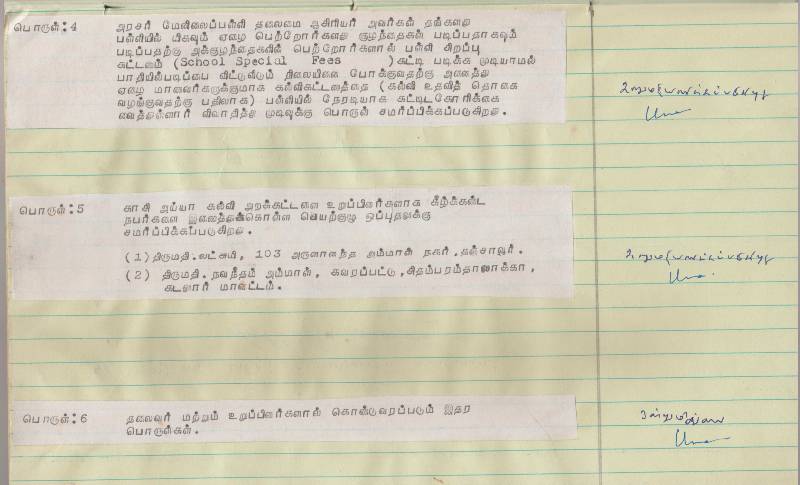 பொருள்:4 அரசர் மேனிலைப்பள்ளி தலைமை ஆசிரியர் அவர்கள் தங்களது
பள்ளியில் மிகவும் ஏழை பெற்றோர்களது குழந்தைகள் படிப்பதாகவும்
படிப்பதற்கு அக்குழந்தைகளின் பெற்றோர்களால் பள்ளி சிறப்பு
கட்டணம் (School Special Fees )கட்டி படிக்க முடியாமல்
பாதியில்படிப்பை விட்டுவிடும் நிலையினை போக்குவதற்கு அனைத்து
ஏழை மாணவர்களுக்குமாக கல்விகட்டணத்தை (கல்வி உதவித் தொகை
வழங்குவதற்கு பதிலாக) பள்ளியில் நேரடியாக கட்டிடகோரிக்கை
வைத்துள்ளார் விவாதித்து முடிவுக்கு பொருள் சமர்ப்பிக்கப்படுகிறது.
பொருள்:5 காசி அய்யா கல்வி அறக்கட்டளை உறுப்பினர்களாக கீழ்க்கண்ட
நபர்களை இணைத்துக்கொள்ள செயற்குழு ஒப்புதலுக்கு
சமர்ப்பிக்கப்படுகிறது.
(1)திருமதி.லட்சுமி, 103 அருளானந்த அம்மாள் நகர்,தஞ்சாவூர்.
(2) திருமதி.நவநீதம் அம்மாள், கவரப்பட்டு,சிதம்பரம்தாலுக்கா,
கடலூர் மாவட்டம்.
பொருள்:6 தலைவர் மற்றும் உறுப்பினர்களால் கொண்டுவரப்படும் இதர
பொருள்கள்.